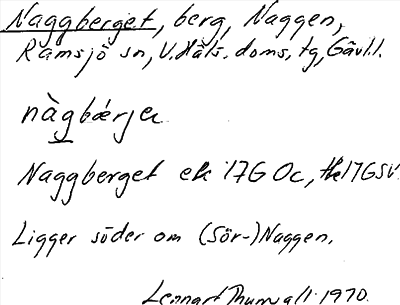 Naggberget, berg, Naggen,
Ramsjö sn, V. Häls. doms. tg, Gävl.l.
nàgbærjɛ
Naggberget ek 17G Oc, tk17GSV.
Ligger söder om (Sör-)Naggen.
Lennart Thunvall 1970.